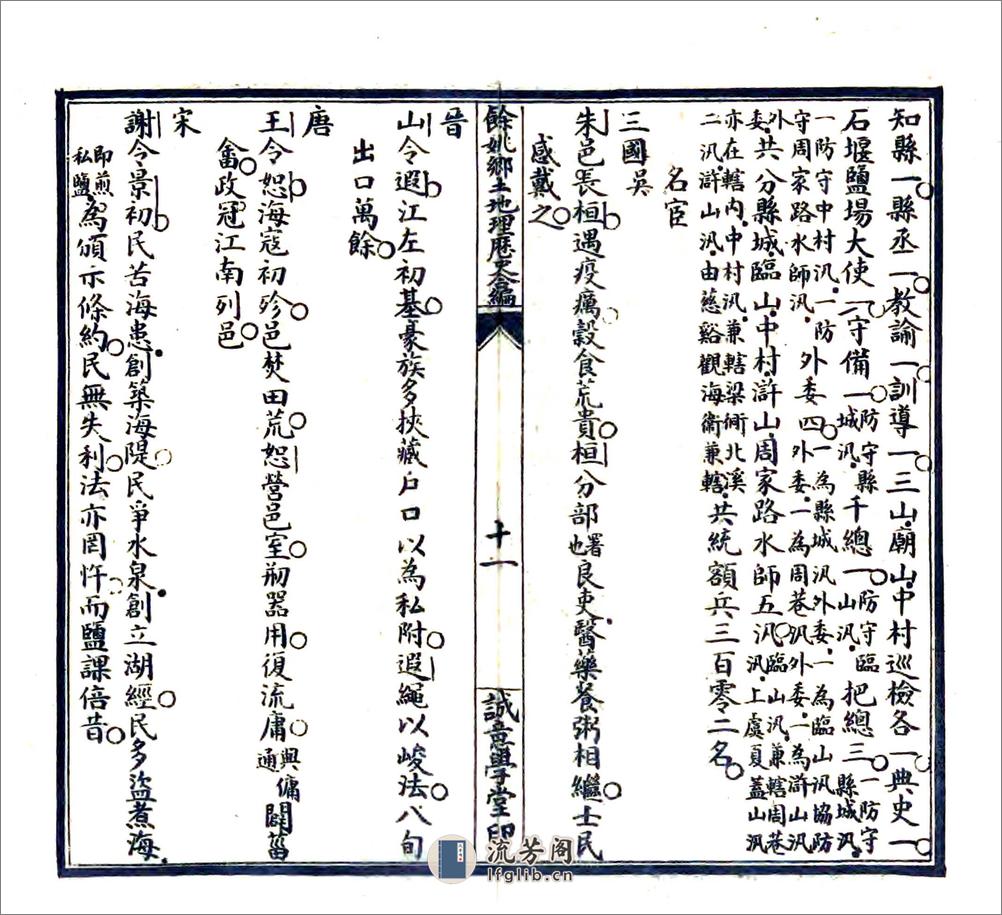 知縣一縣丞一教諭一訓導一三山廟山中村巡檢各一典史一
石堰鹽場大使一守備一防守縣城汛千總一防守臨山汛把總三一防守縣城汛
一防守中村汛一防守周家路水師汛外委四一為縣城汛外委一為臨山汛協防外委一為周巷汛外委一為滸山汛
外委共分縣城臨山中村滸山周家路水師五汛臨山汛兼轄周巷汛上虞夏蓋山汛
亦在轄內中村汛兼轄梁衕北溪二汛滸山汛由慈谿觀海衛兼轄共統額兵三百零二名
名宦
三國吳
朱邑長桓遇疫癘穀食荒貴桓分部署也良吏醫藥餐粥相繼士民
感戴之
餘姚鄉土地理歷史合編
十一
誠意學堂印
晉
山令遐江左初基豪族多挾藏戶口以為私附遐繩以峻法八旬
出口萬餘
唐
王令恕海寇初殄邑焚田荒恕營邑室刱器用復流庸與傭通闢菑
畬政冠江南列邑
宋
謝令景初民苦海患創築海隄民爭水泉創立湖經民多盜煮海
即煎私鹽為頒示條約民無失利法亦罔忤而鹽課倍昔
流芳阁
lfglib.cn